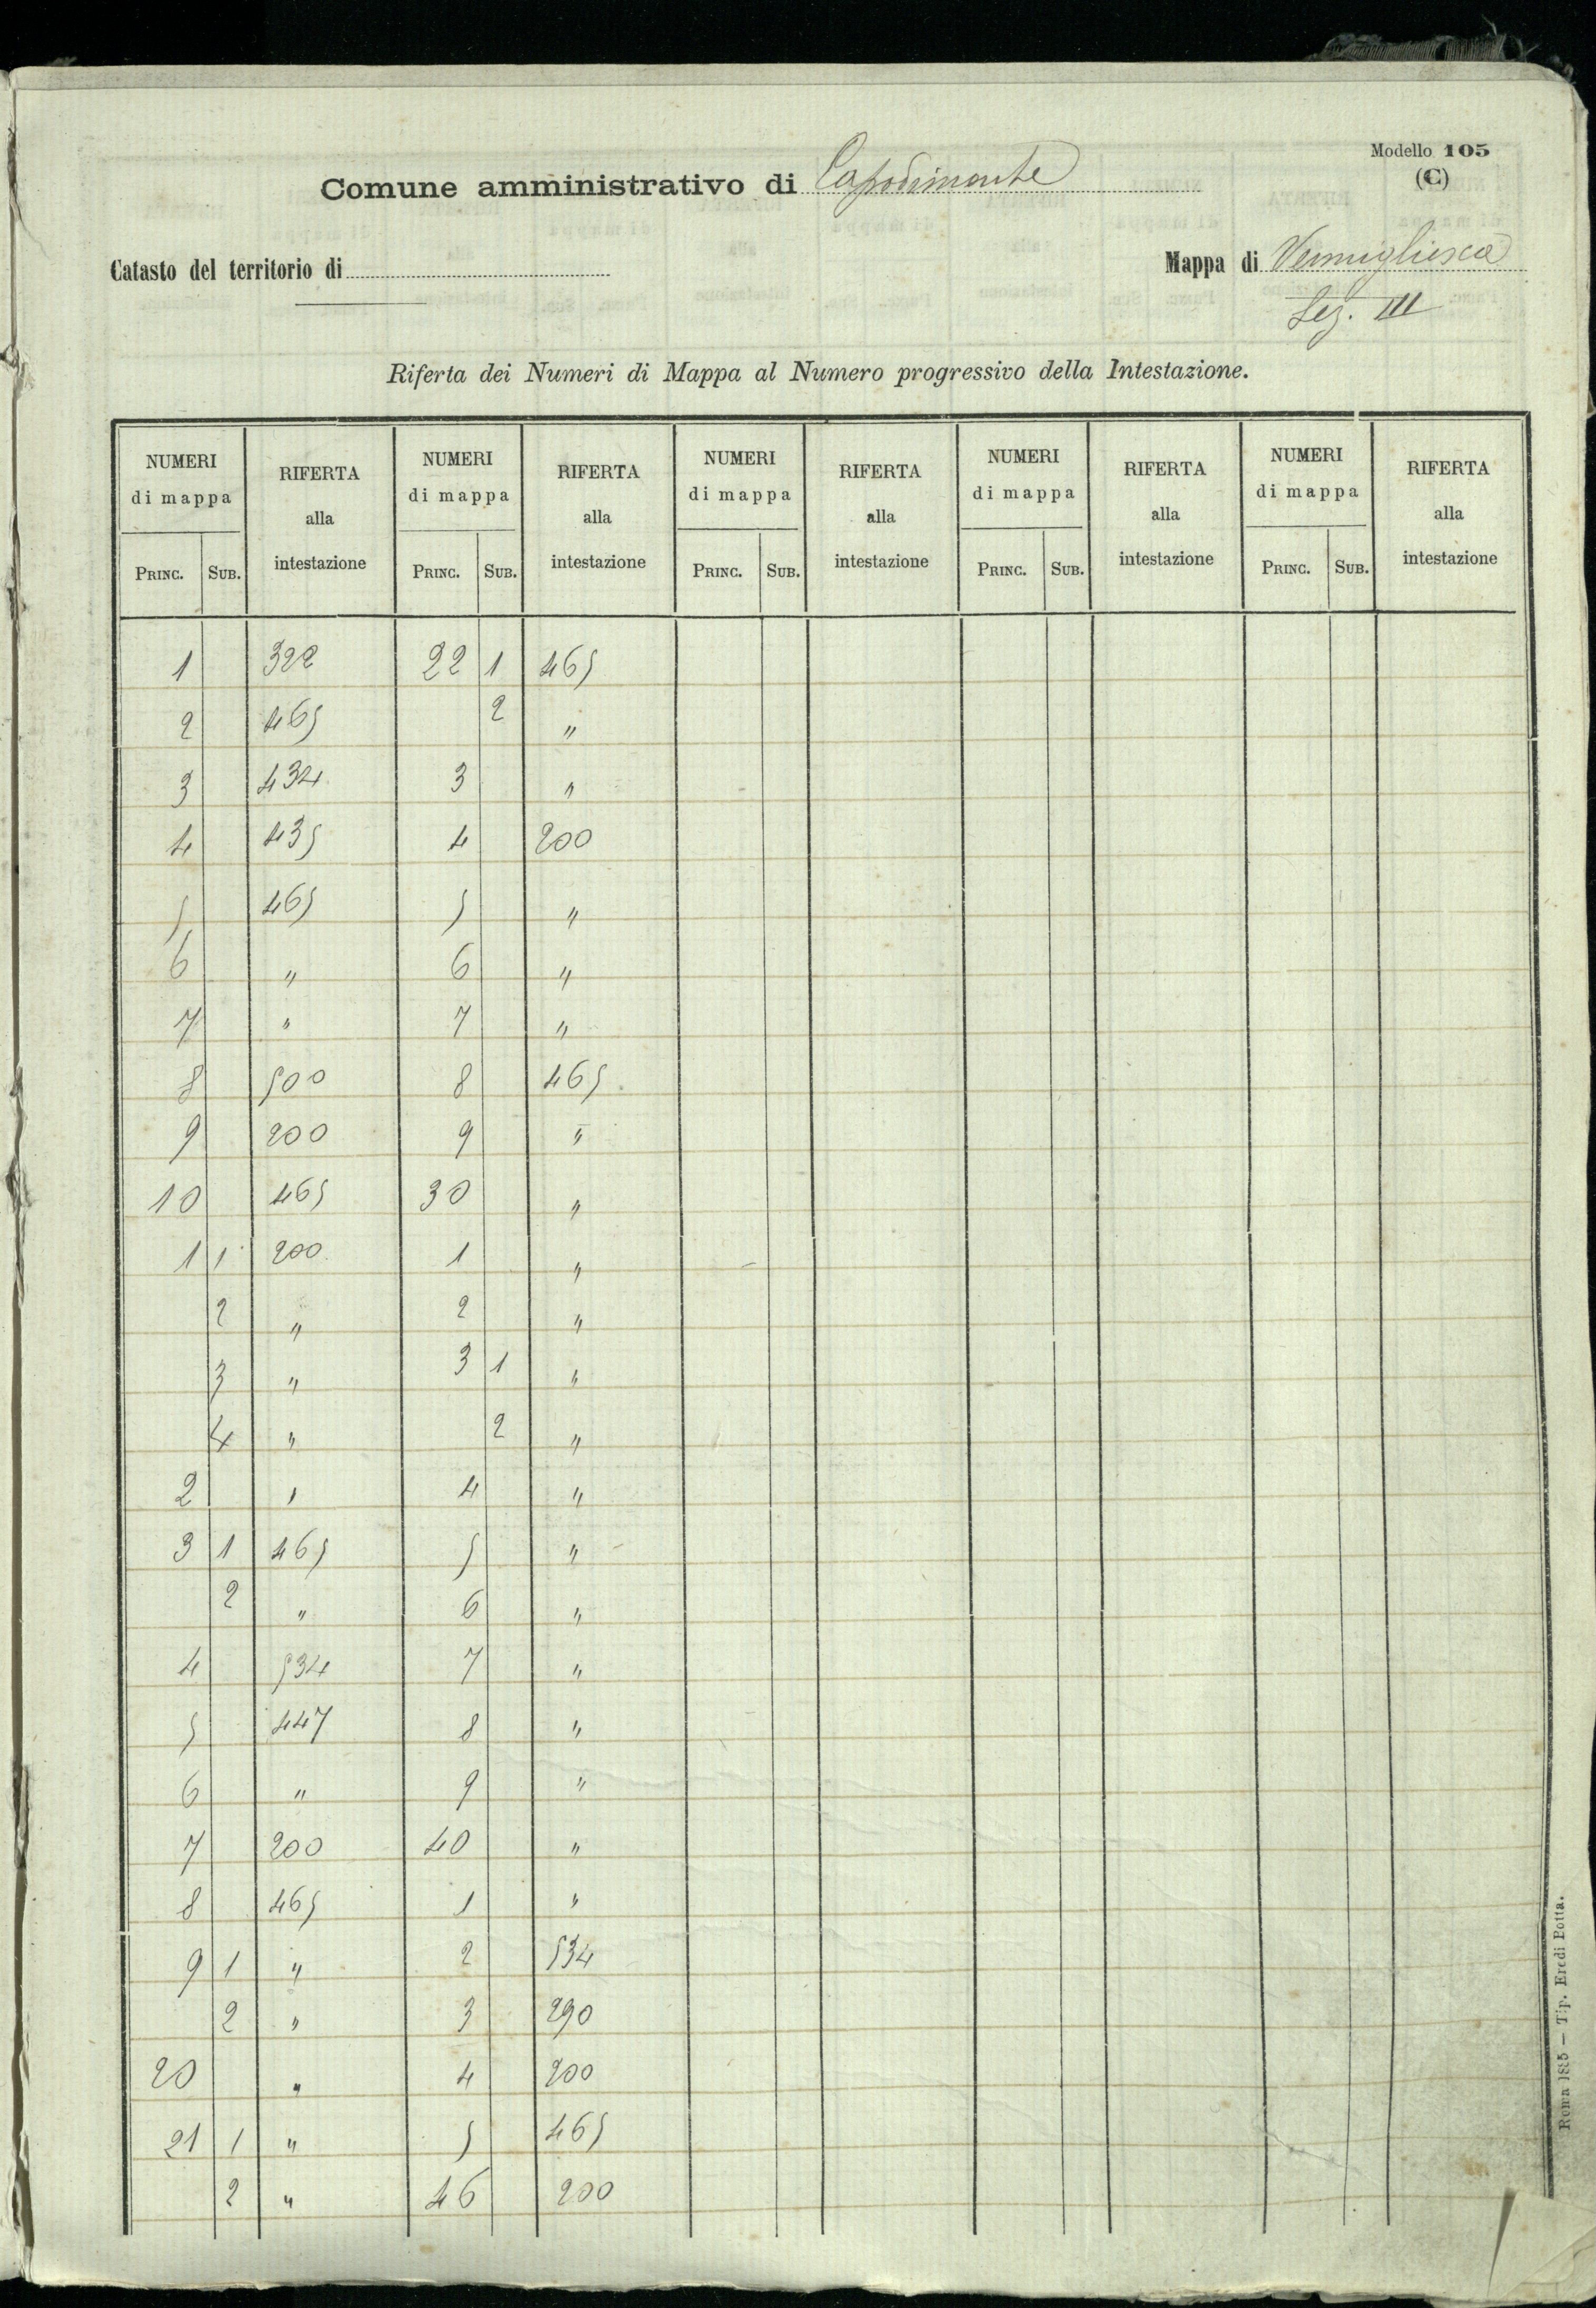 Modello 105
(C)
Comune amministrativo di Capodimonte
Catasto del territorio di
Mappa di Vermigliesca
Sez. III
Riferta dei Numeri di Mappa al Numero progressivo della Intestazione.
NUMERI di mappa RIFERTA alla intestazione NUMERI di mappa RIFERTA alla intestazione NUMERI di mappa RIFERTA alla intestazione NUMERI di mappa RIFERTA alla intestazione NUMERI di mappa RIFERTA alla intestazione
PRINC. SUB. PRINC. SUB. PRINC. SUB. PRINC. SUB. PRINC. SUB.
1 322 22 1 465
2 465 2 "
3 434 3 "
4 435 4 200
5 465 5 "
6 " 6 "
7 " 7 "
8 500 8 465
9 200 9 "
10 465 30 "
1 1 200 1 "
2 " 2 "
3 " 3 1 "
4 " 2 "
2 " 4 "
3 1 465 5 "
2 " 6 "
4 534 7 "
5 447 8 "
6 " 9 "
7 200 40 "
8 465 1 "
9 1 " 2 534
2 " 3 290
20 " 4 200
21 1 " 5 465
2 " 46 200
Roma 1885 — Tip. Eredi Botta.